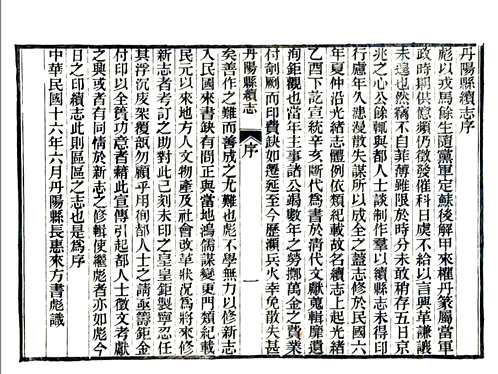 丹陽縣續志序
彪以戎馬餘生隨黨軍定蘇後解甲來權丹篆屬當軍
政時期供憶頻仍徵發催科日處不給以言興革謙讓
未遑也然竊不自菲薄雖限於時分未敢稍存五日京
兆之心公餘輒與都人士談制作羣以續縣志未得印
行慮年久漫散失謀所以成全之蓋志修於民國六
年夏仲沿光緒志體例依類紀載故名續志上起光緒
乙酉下訖宣統辛亥斷代為書於清代文獻蒐輯靡遺
洵鉅觀也當年主事諸公竭數年之勞擲萬金之費業
付剞劂而印費缺如遷延至今歷瀕兵火幸免散失甚
丹陽縣續志
序
一
矣善作之難而善成之尤難也彪不學無力以修新志
入民國來書缺有間正與當地鴻儒謀變更門類紀載
民元以來地方人文物產及社會改革狀況為將來修
新志者考訂之助對此已刻未印之皇皇鉅製寧忍任
其浮沉庋架覆瓿勿顧乎用徇都人士之請亟籌鉅金
付印以全舊功意者藉此宣傳引起都人士徵文考獻
之興或者有同情於新志之修輯使繼彪者亦如彪今
日之印續志此則區區之志也是為序
中華民國十六年六月丹陽縣長惠來方書彪識